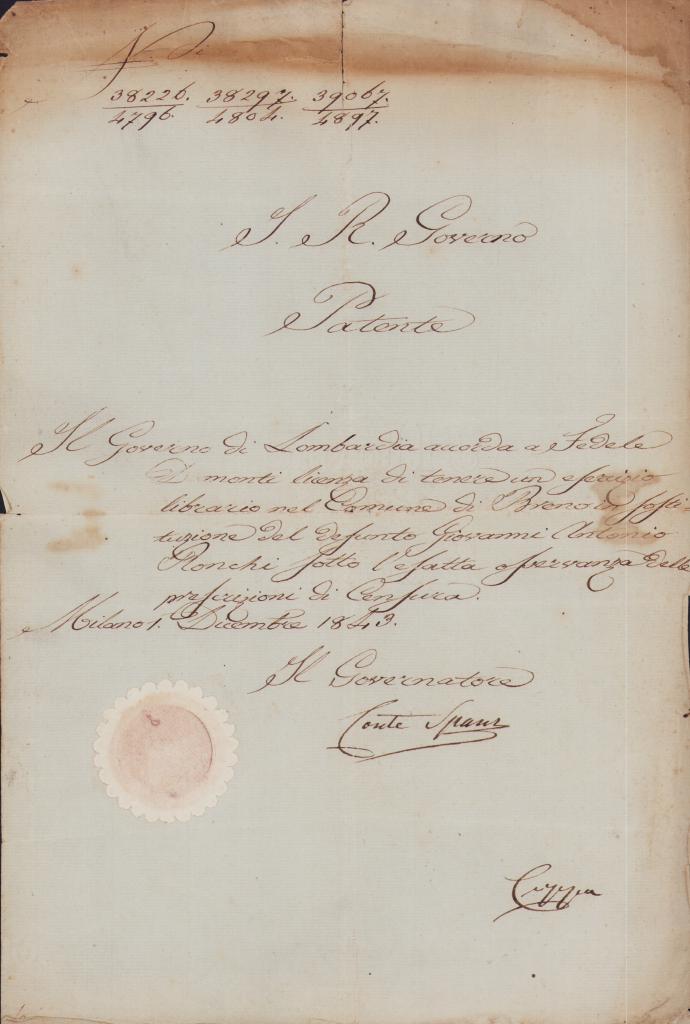 N. i
38226. 38297. 39067.
4796. 4804. 4897.
I. R. Governo
Patente
Il Governo di Lombardia accorda a Fedele
monti licenza di tenere un esercizio
librario nel Comune di Breno in sosti-
tuzione del defunto Giovanni Antonio
Ronchi sotto l'esatta osservanza delle
prescrizioni di Censura.
Milano 1. Dicembre 1843.
Il Governatore
Conte Spaur